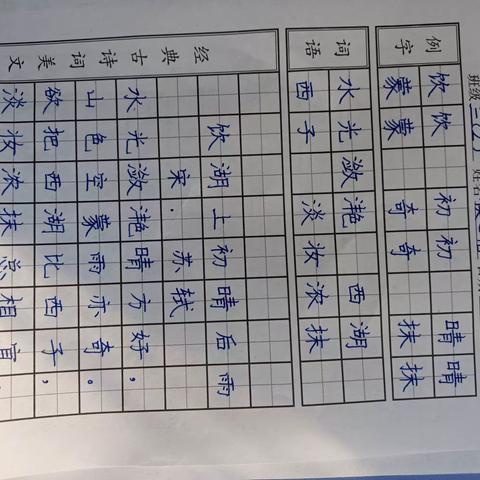 班级 三(2) 姓名
例字
饮饮 初初 晴晴
蒙蒙 奇奇 抹抹
词语
水光潋滟 西湖
西子 淡妆浓抹
经典古诗词美文
饮湖上初晴后雨
宋·苏轼
水光潋滟晴方好，
山色空蒙雨亦奇。
欲把西湖比西子，
淡妆浓抹总相宜。